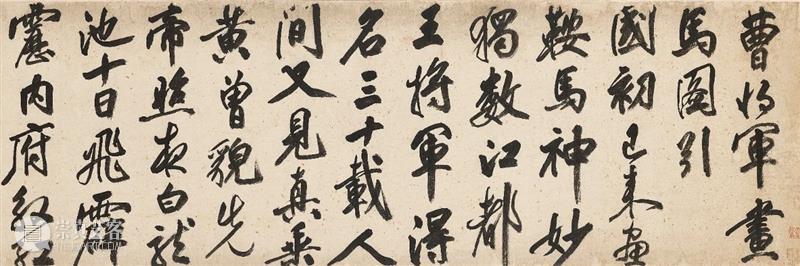 曹将軍畫
馬圖引
國初已来畫
鞍馬神妙
獨數江都
王将軍得
名三十載人
間又見真乗
黄曾貌先
帝照夜白龍
池十日飛霹
靂内府殷紅
崇真艺客